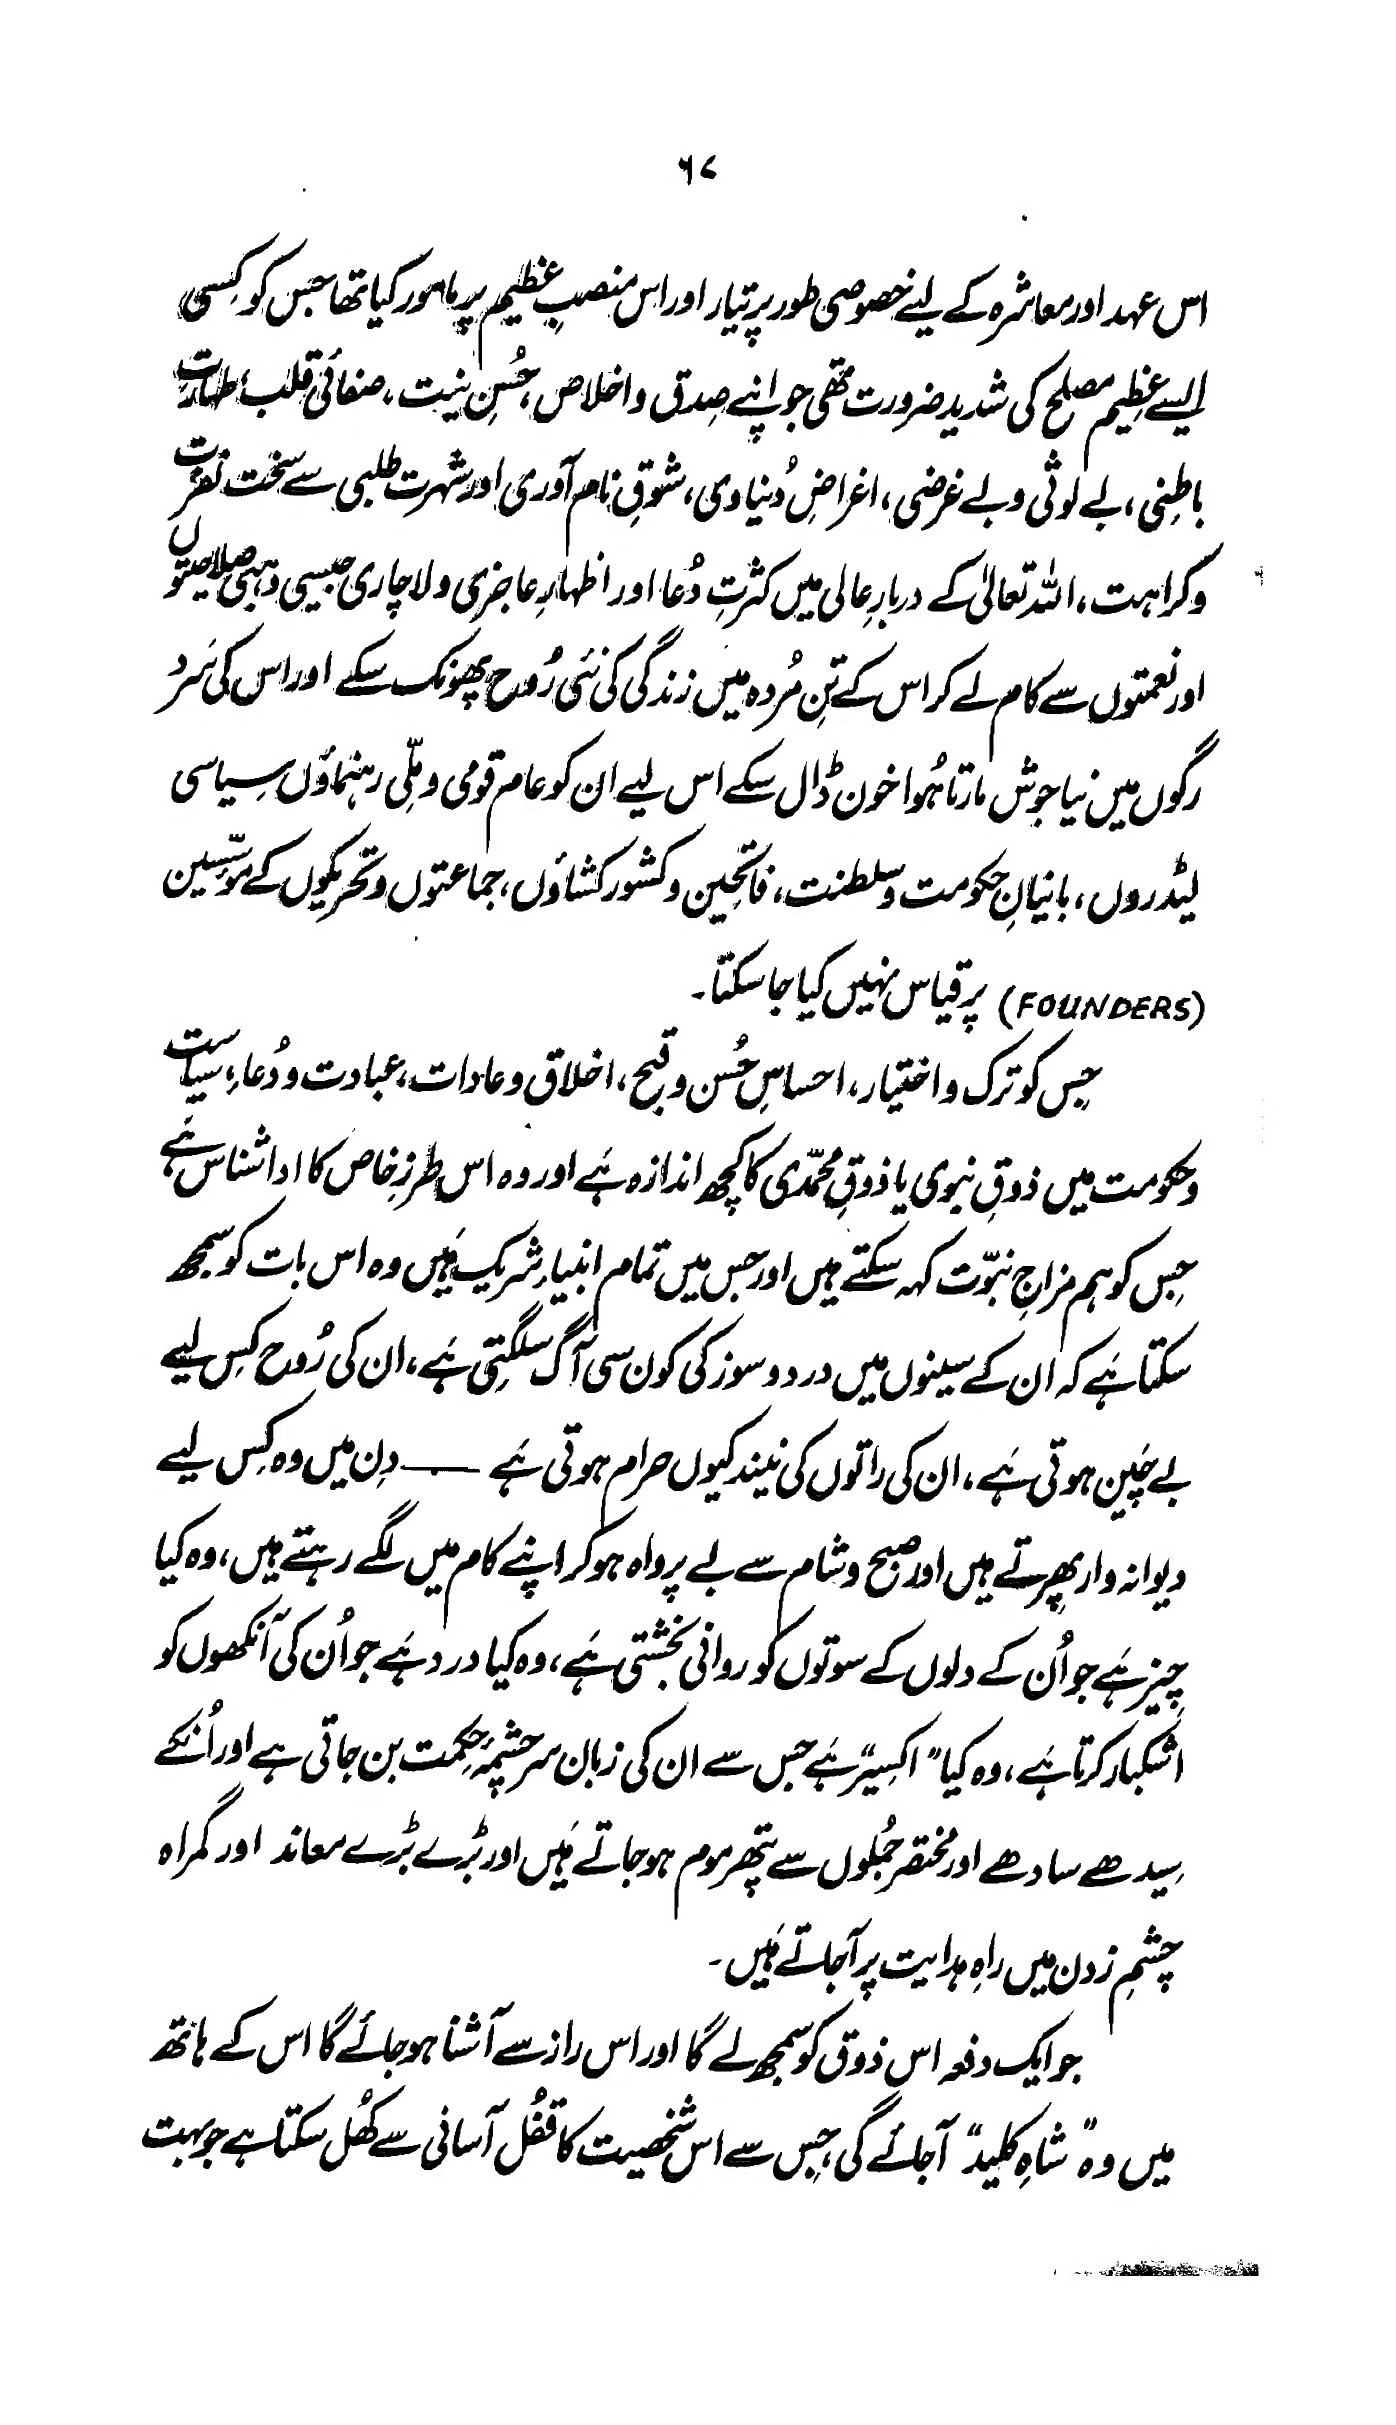 ۶۷
اس عہد اور معاشرہ کے لیئے خصوصی طور پر تیار اور اس منصبِ عظیم پر مامور کیا تھا جس کو کِسی
ایسے عظِیم مصلح کی شدید ضرورت تھی جو اپنے صِدق و اخلاص، حُسنِ نیت، صفائی قلب، طہارتِ
باطِنی، بے لوثی و بے غرضی، اغراضِ دُنیاوی، شوقِ نام آوری اور شہرت طلبی سے سخت نفرت
و کراہت، اللہ تعالیٰ کے دربارِ عالی میں کثرتِ دُعا اور اظہارِ عاجزی و لاچاری جیسی وہبی صلاحیتوں
اور نعمتوں سے کام لے کر اس کے تنِ مُردہ میں زندگی کی نئی رُوح پھونک سکے اور اس کی سَرد
رگوں میں نیا جوش مارتا ہُوا خون ڈال سکے اس لیے ان کو عام قومی و ملّی رہنماؤں سیاسی
لیڈروں، بانیانِ حکومت و سلطنت، فاتحین و کشور کشاؤں، جماعتوں و تحریکوں کے مؤسّسین
(FOUNDERS) پر قیاس نہیں کیا جا سکتا۔
جِس کو ترک و اختیار، احساسِ حُسن و قبح، اخلاق و عادات، عبادت و دُعاء، سیاست
و حکومت میں ذوقِ نبوی یا ذوقِ محمّدی کا کچھ اندازہ ہَے اور وہ اس طرزِ خاص کا ادا شناس ہَے
جِس کو ہم مزاجِ نبوّت کہہ سکتے ہیں اور جس میں تمام انبیاء شریک ہَیں وہ اس بات کو سمجھ
سکتا ہَے کہ ان کے سینوں میں درد و سوز کی کون سی آگ سلگتِی ہَے، ان کی رُوح کِس لیے
بے چَین ہوتی ہَے، ان کی راتوں کی نیند کیوں حرام ہوتی ہَے —— دِن میں وہ کِس لیے
دیوانہ وار پھرتے ہیں اور صبح و شام سے بے پرواہ ہو کر اپنے کام میں لگے رہتے ہیں، وہ کیا
چِیز ہَے جو اُن کے دلوں کے سوتوں کو روانی بخشتی ہَے، وہ کیا درد ہَے جو اُن کی آنکھوں کو
اَشکبار کرتا ہَے، وہ کیا "اکسِیر" ہَے جس سے ان کی زبان سرچشمۂ حِکمت بن جاتی ہے اور اُنکے
سِیدھے سادھے اور مختصر جُملوں سے پتھر موم ہو جاتے ہَیں اور بڑے بڑے معاند اور گمراہ
چشمِ زدن میں راہِ ہدایت پر آ جاتے ہَیں۔
جو ایک دفعہ اس ذوق کو سمجھ لے گا اور اس راز سے آشنا ہو جائے گا اس کے ہاتھ
میں وہ "شاہِ کلید" آ جائے گی، جِس سے اس شخصیت کا قفُل آسانی سے کھُل سکتا ہے جو بہت